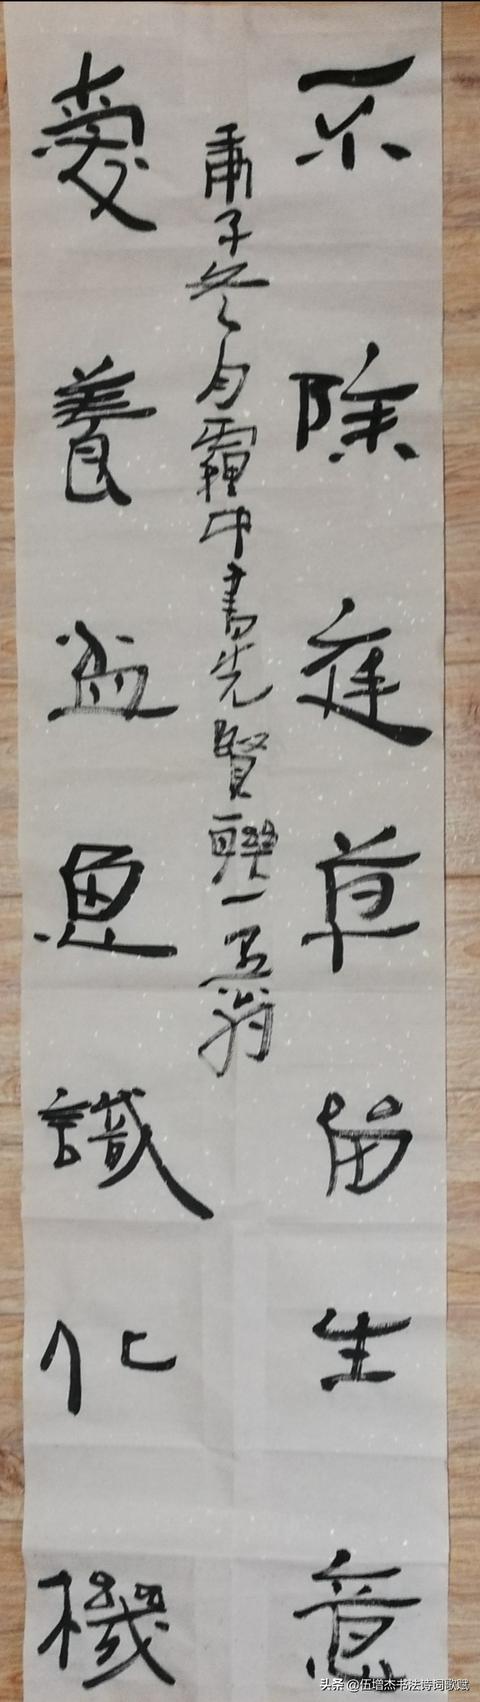 不除庭草留生意
庚子冬月霾中書先賢聯一翁
愛養盆魚識化機
头条 @伍增杰书法诗词歌赋